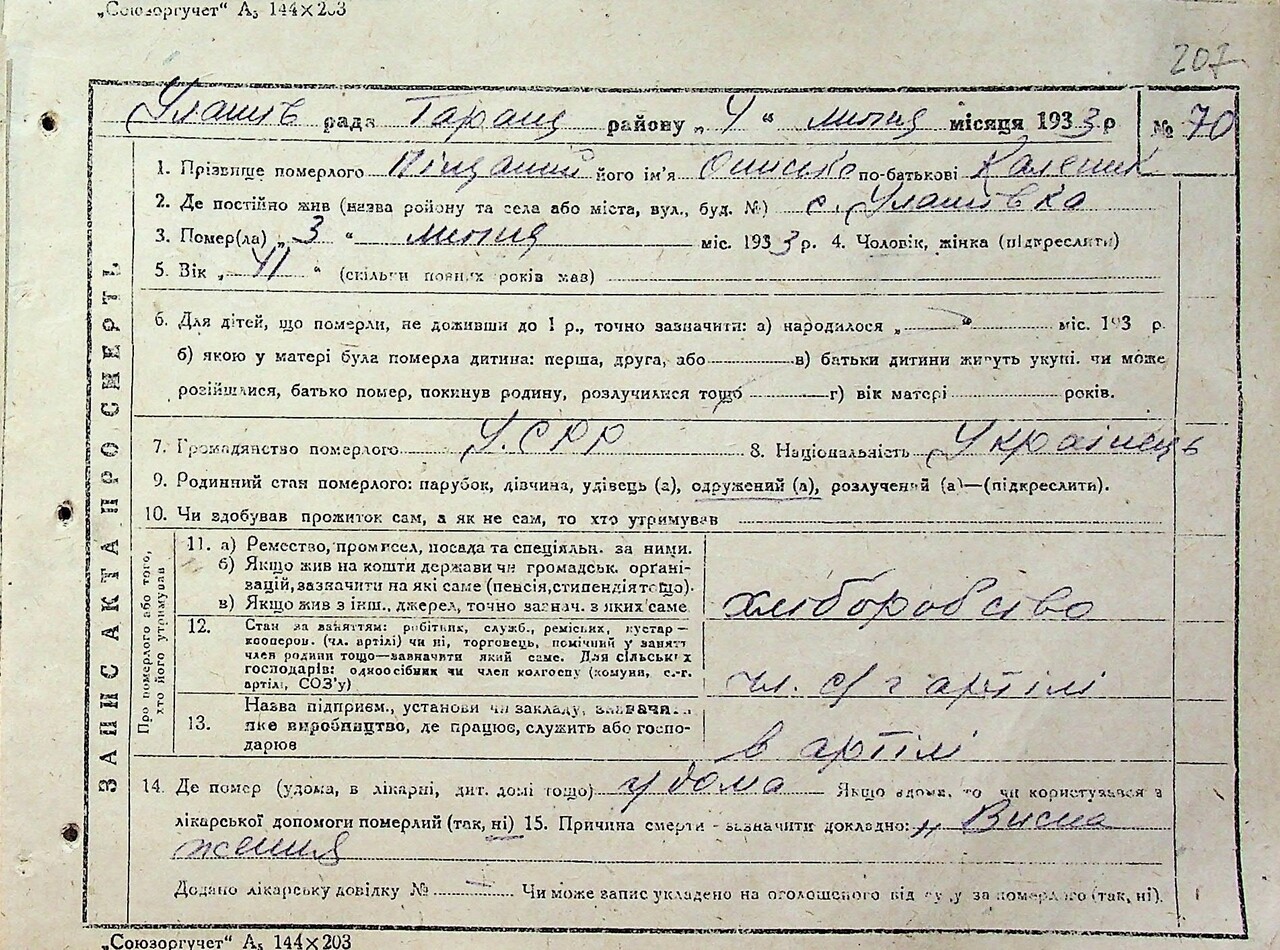 „Союзоргучет“ А₅ 144×203
207
Улашів рада Таращ району „ 4 “ липня місяця 1933 р № 70
ЗАПИС АКТА ПРО СМЕРТЬ
1. Прізвище померлого Піщаний його ім'я Онисько по-батькові Калених
2. Де постійно жив (назва району та села або міста, вул., буд. №) с. Улашівка
3. Помер(ла) „ 3 “ липня міс. 1933 р. 4. Чоловік, жінка (підкреслити)
5. Вік „ 41 “ (скільки повних років мав)
6. Для дітей, що померли, не доживши до 1 р., точно зазначити: а) народилося „ “ міс. 193 р.
б) якою у матері була померла дитина: перша, друга, або в) батьки дитини живуть укупі. чи може
розійшлися, батько помер, покинув родину, розлучилися тощо г) вік матері років.
7. Громадянство померлого У.СРР 8. Національність Українець
9. Родинний стан померлого: парубок, дівчина, удівець (а), одружений (а), розлучений (а)—(підкреслити).
10. Чи здобував прожиток сам, а як не сам, то хто утримував
Про померлого або того, хто його утримував
11. а) Ремество, промисел, посада та спеціяльн. за ними.
б) Якщо жив на кошти держави чи громадськ. орґані-
зацій, зазначити на які саме (пенсія, стипендія тощо).
в) Якщо жив з інш., джерел, точно зазнач. з яких саме
хліборобство
12. Стан за заняттям: робітник, служб., реміських, кустар—
кооперов. (чл. артілі) чи ні, торговець, помічний у занятт
член родини тощо—зазначити який саме. Для сільських
господарів: одноосібник чи член колгоспу (комуни, с.-г.
артілі, СОЗ'у)
чл. с/г артілі
13. Назва підприєм., установи чи закладу, зазначити
яке виробництво, де працює, служить або госпо-
дарює
в артілі
14. Де помер (удома, в лікарні, дит. домі тощо) удома Якщо вдома, то чи користувався з
лікарської допомоги померлий (так, ні) 15. Причина смерти - зазначити докладно: Висна
ження
Додано лікарську довідку № Чи може запис укладено на оголошеного від суду за померлого (так, ні).
„Союзоргучет“ А₅ 144×203